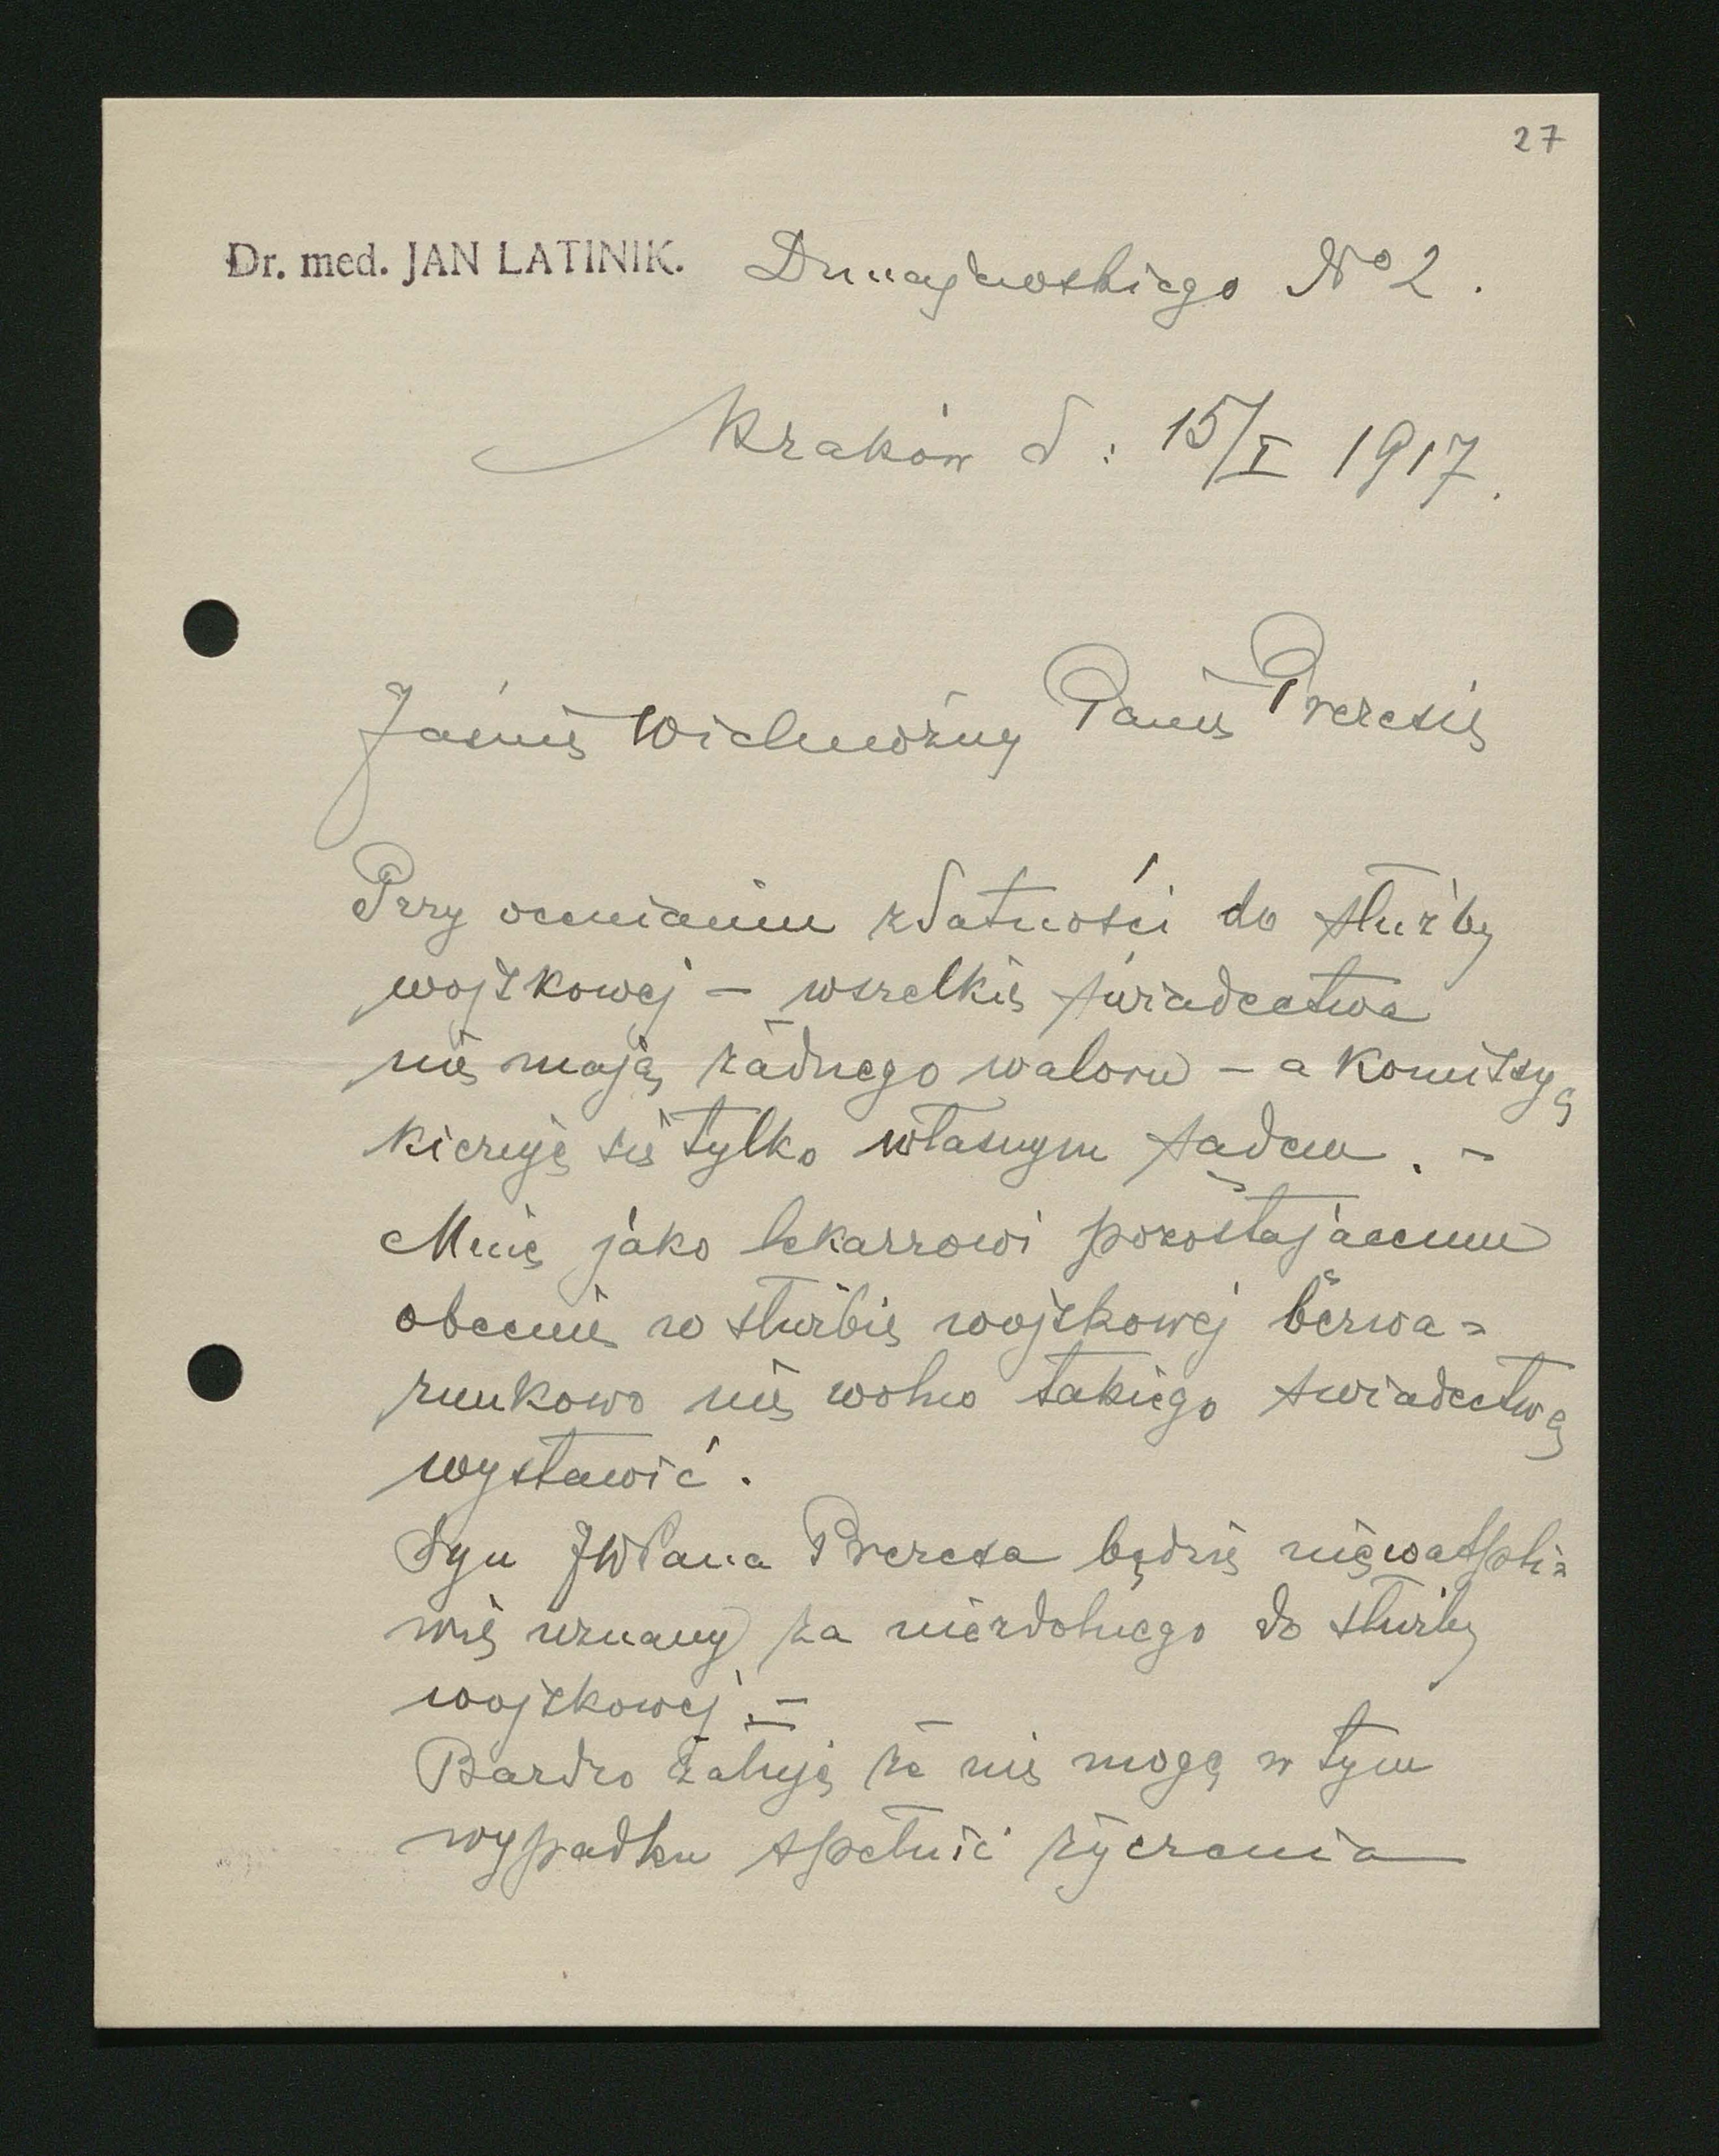 27
Dr. med. JAN LATINIK. Dunajewskiego No 2.
Kraków d: 15/I 1917.
Jaśnie Wielmożny Panie Prezesie
Przy ocenianiu zdatności do służby
wojskowej – wszelkie świadectwa
nie mają żadnego waloru – a Komissya
kieruje się tylko własnym sądem. –
Mnie jako lekarzowi pozostającemu
obecnie w służbie wojskowej bezwa=
runkowo nie wolno takiego świadectwa
wystawić.
Syn JWPana Prezesa będzie niewątpli=
wie uznany za niezdolnego do służby
wojskowej. –
Bardzo żałuję że nie mogę w tym
wypadku spełnić życzenia